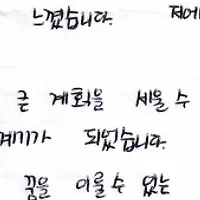 느꼈습니다. 저에
큰 계획을 세울 수
계기가 되었습니다.
꿈을 이룰 수 있는